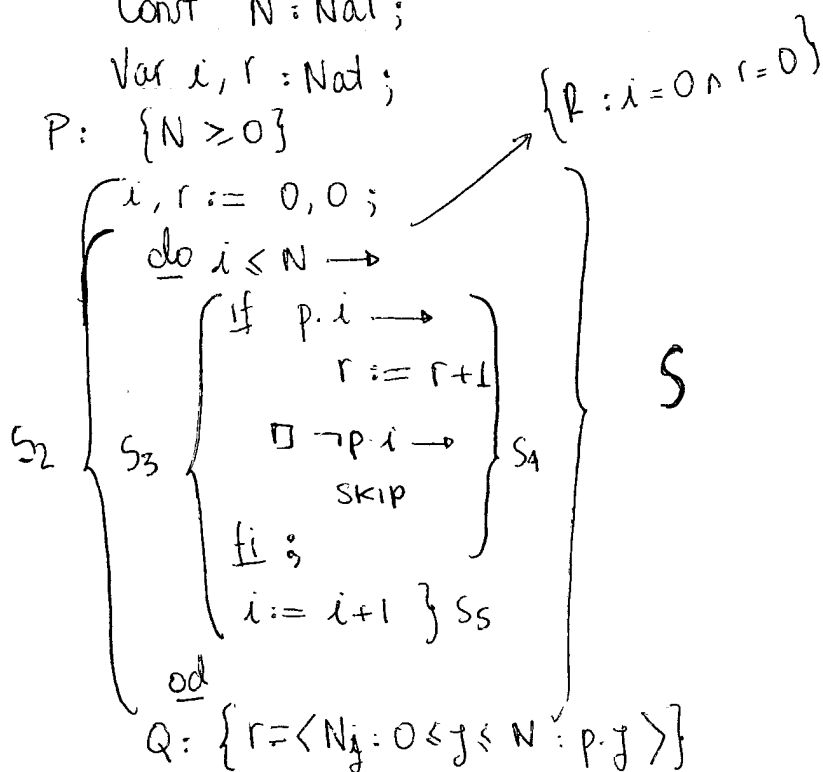 Const N : Nat ;
Var i, r : Nat ;
P: {N ≥ 0}
{R : i = 0 ∧ r = 0}
i, r := 0, 0 ;
do i ≤ N →
if p.i →
r := r+1
□ ¬p.i →
SKIP
fi ;
i := i+1 } S5
od
S2
S3
S4
S
Q: {r = <Nj : 0 ≤ j ≤ N : p.j>}